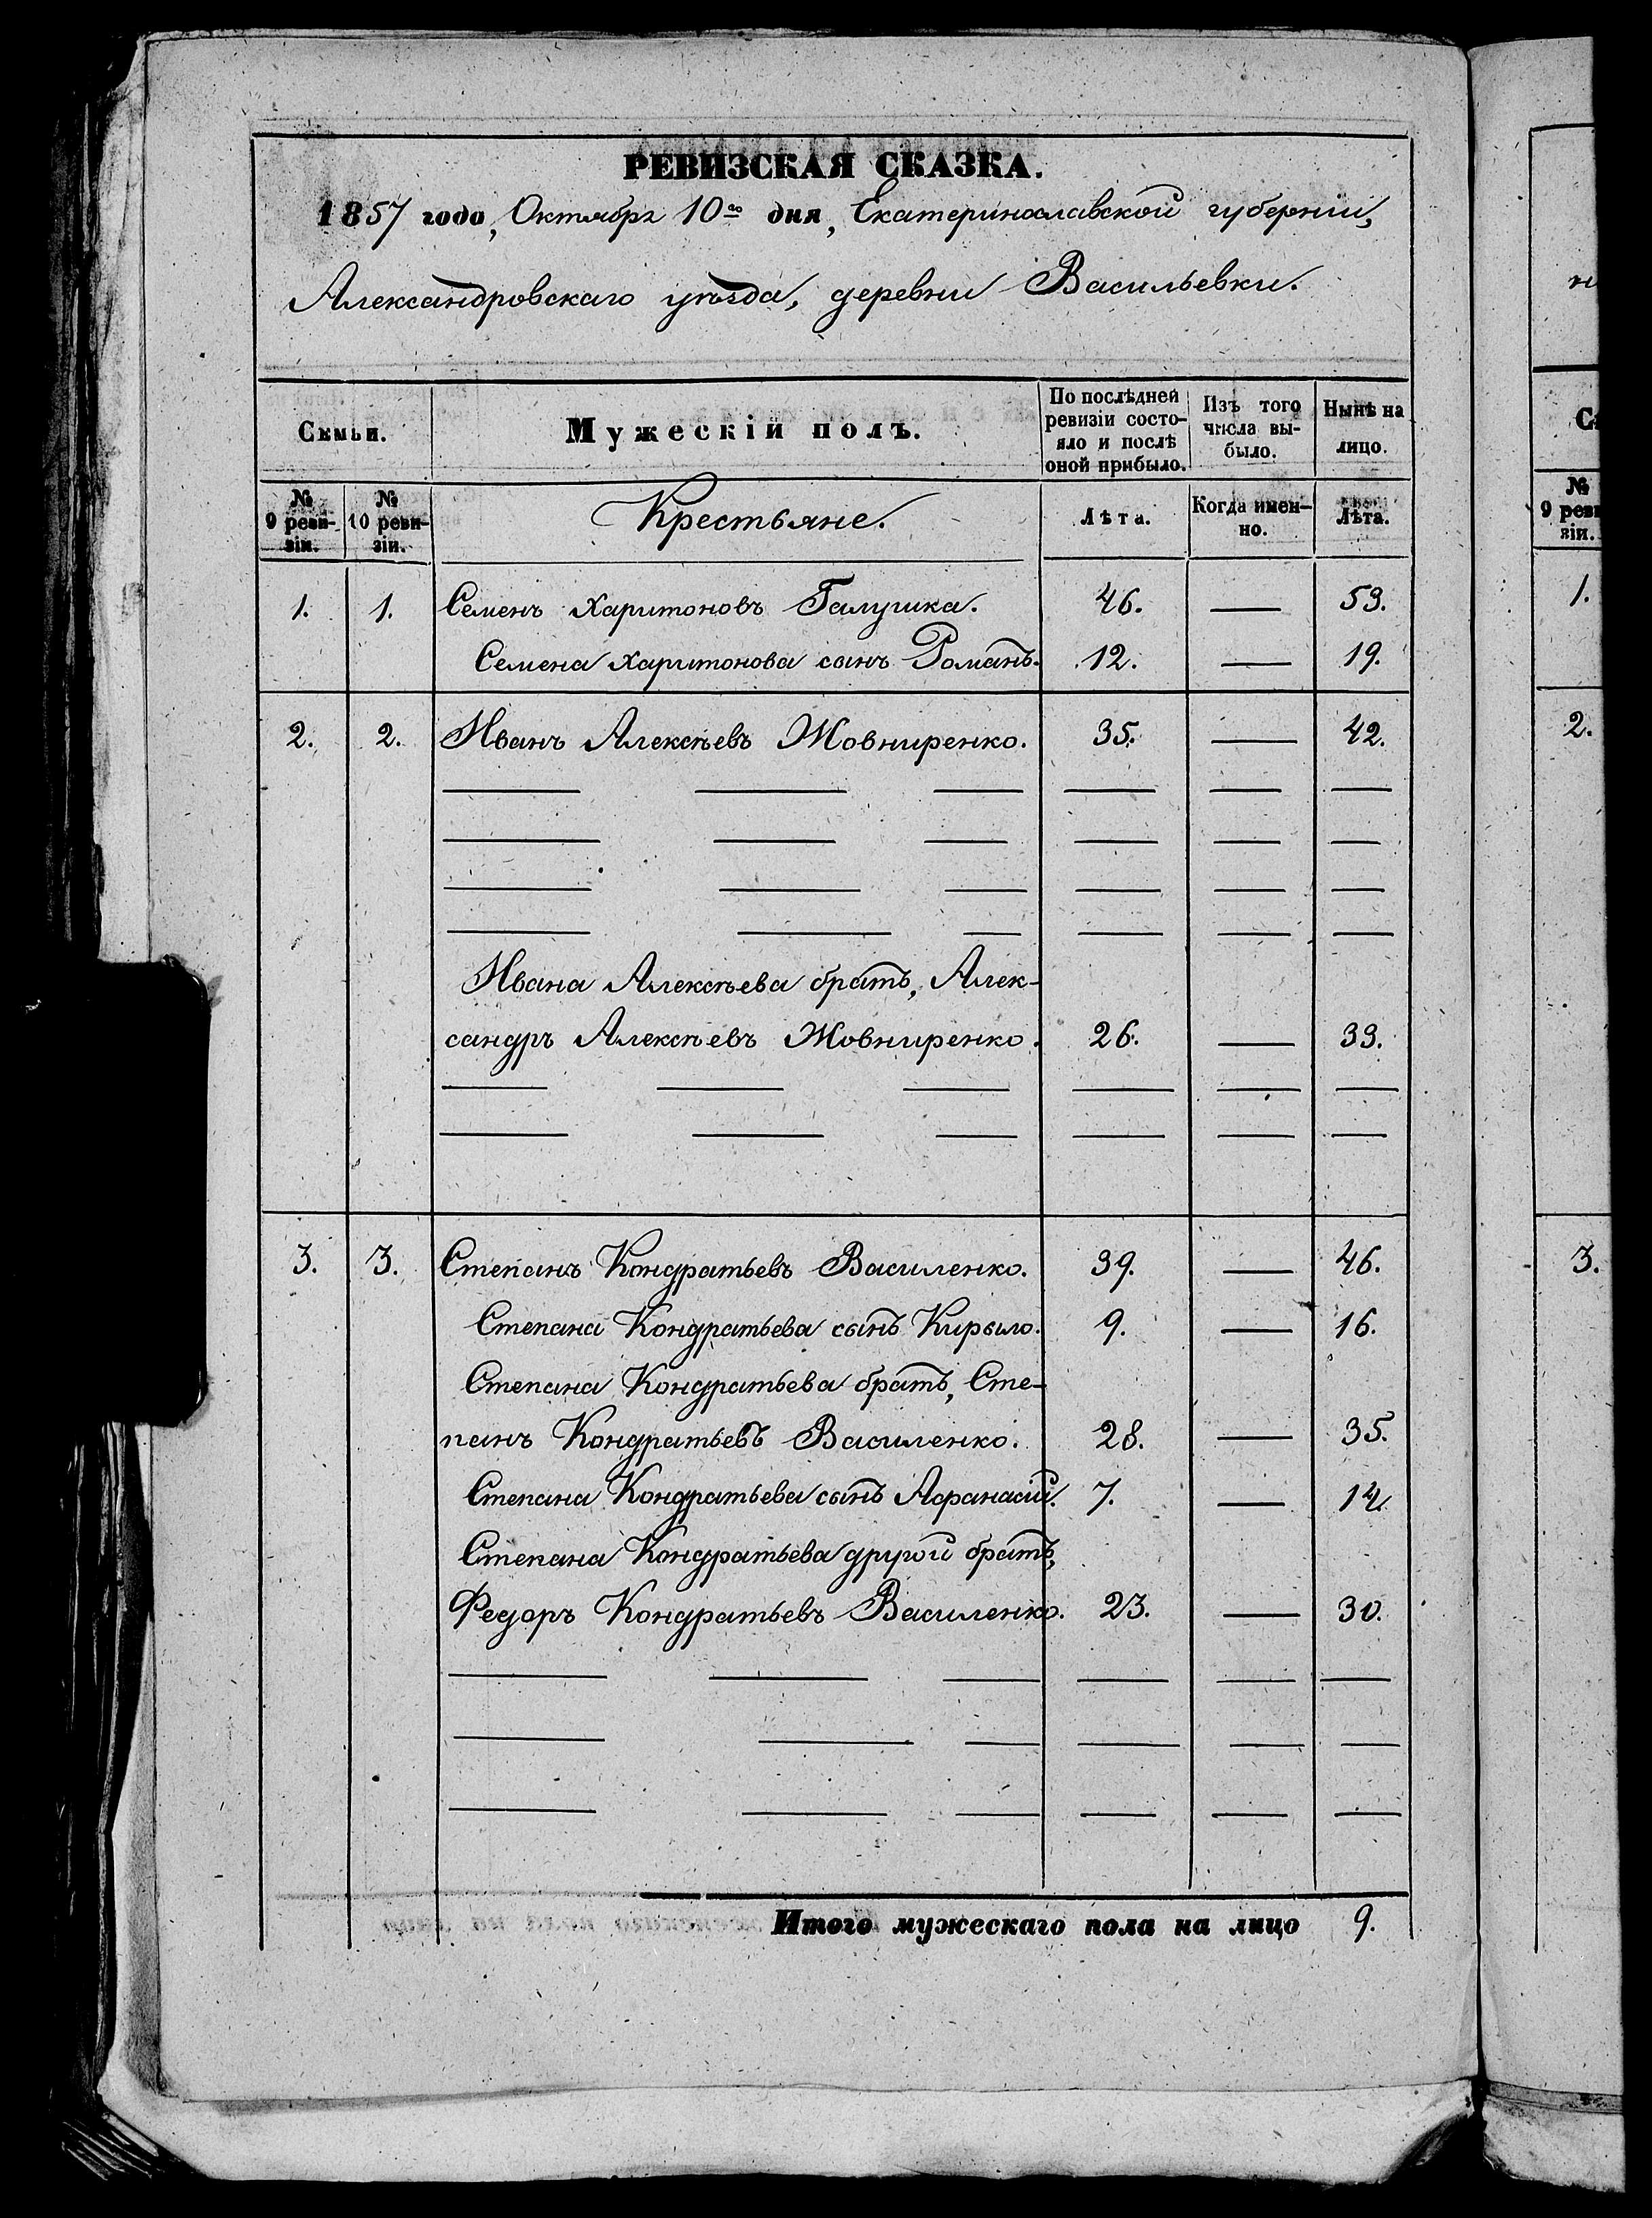 РЕВИЗСКАЯ СКАЗКА.
1857 года, Октября 10го дня, Екатеринославской губерніи,
Александровскаго уѣзда, деревни Васильевки.
Семьи. Мужескій полъ. По послѣдней ревизіи состояло и послѣ оной прибыло. Изъ того числа выбыло. Нынѣ на лицо.
№ 9 ревизіи. № 10 ревизіи. Крестьяне. Лѣта. Когда именно. Лѣта.
1. 1. Семенъ Харитоновъ Галушка. 46. — 53.
Семена Харитонова сынъ Романъ. 12. — 19.
2. 2. Иванъ Алексѣевъ Жовниренко. 35. — 42.
Ивана Алексѣева братъ, Алек-
сандръ Алексѣевъ Жовниренко. 26. — 33.
3. 3. Степанъ Кондратьевъ Василенко. 39. — 46.
Степана Кондратьева сынъ Кирыло. 9. — 16.
Степана Кондратьева братъ, Сте-
панъ Кондратьевъ Василенко. 28. — 35.
Степана Кондратьева сынъ Афанасій. 7. — 14.
Степана Кондратьева другой братъ,
Федоръ Кондратьевъ Василенко. 23. — 30.
Итого мужескаго пола на лицо 9.
н
С
№
9 реви
зіи.
1.
2.
3.